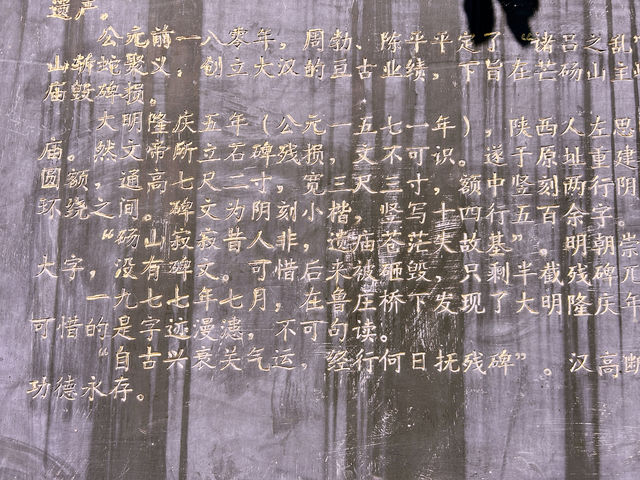 遗产。
公元前一八零年，周勃、陈平平定了“诸吕之乱”
山斩蛇聚义，创立大汉的亘古业绩，下旨在芒砀山主
庙毁碑损。
大明隆庆五年（公元一五七一年），陕西人左思
庙。然文帝所立石碑残损，文不可识。遂于原址重建
圆额，通高七尺二寸，宽三尺三寸，额中竖刻两行阴
环绕之间。碑文为阴刻小楷，竖写十四行五百余字。
“砀山寂寂昔人非，遗庙苍茫失故基”。明朝崇
大字，没有碑文。可惜后来被砸毁，只剩半截残碑
一九七七年七月，在鲁庄桥下发现了大明隆庆
可惜的是字迹漫漶，不可句读。
“自古兴衰关气运，经行何日抚残碑”。汉高断
功德永存。